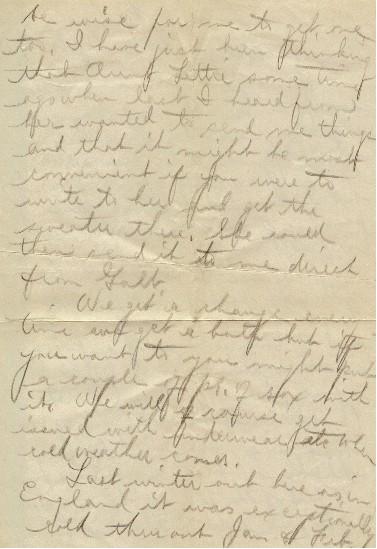 be wise for me to get one
too. I have just been thinking
that Aunt Lettie some time
ago when last I heard from
her wanted to send me things
and that it might be most
convenient if you were to
write to her and get the
sweater there. She could
then send it to me direct
from Galt.
We get a change every
time we get a bath but if
you want to you might put
a couple of pr. of sox with
it. We will of course get
issued with underwear etc when
cold weather comes.
Last winter out here as in
England it was exceptionally
cold thruout Jan & Feb